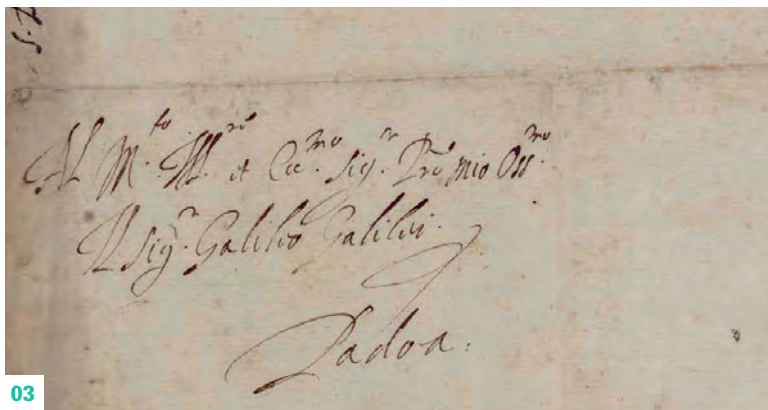 Al M.to Ill.re et Ecc.mo Sig.r P.ron mio Oss.mo
Il Sig.r Galileo Galilei.
Padoa.
03